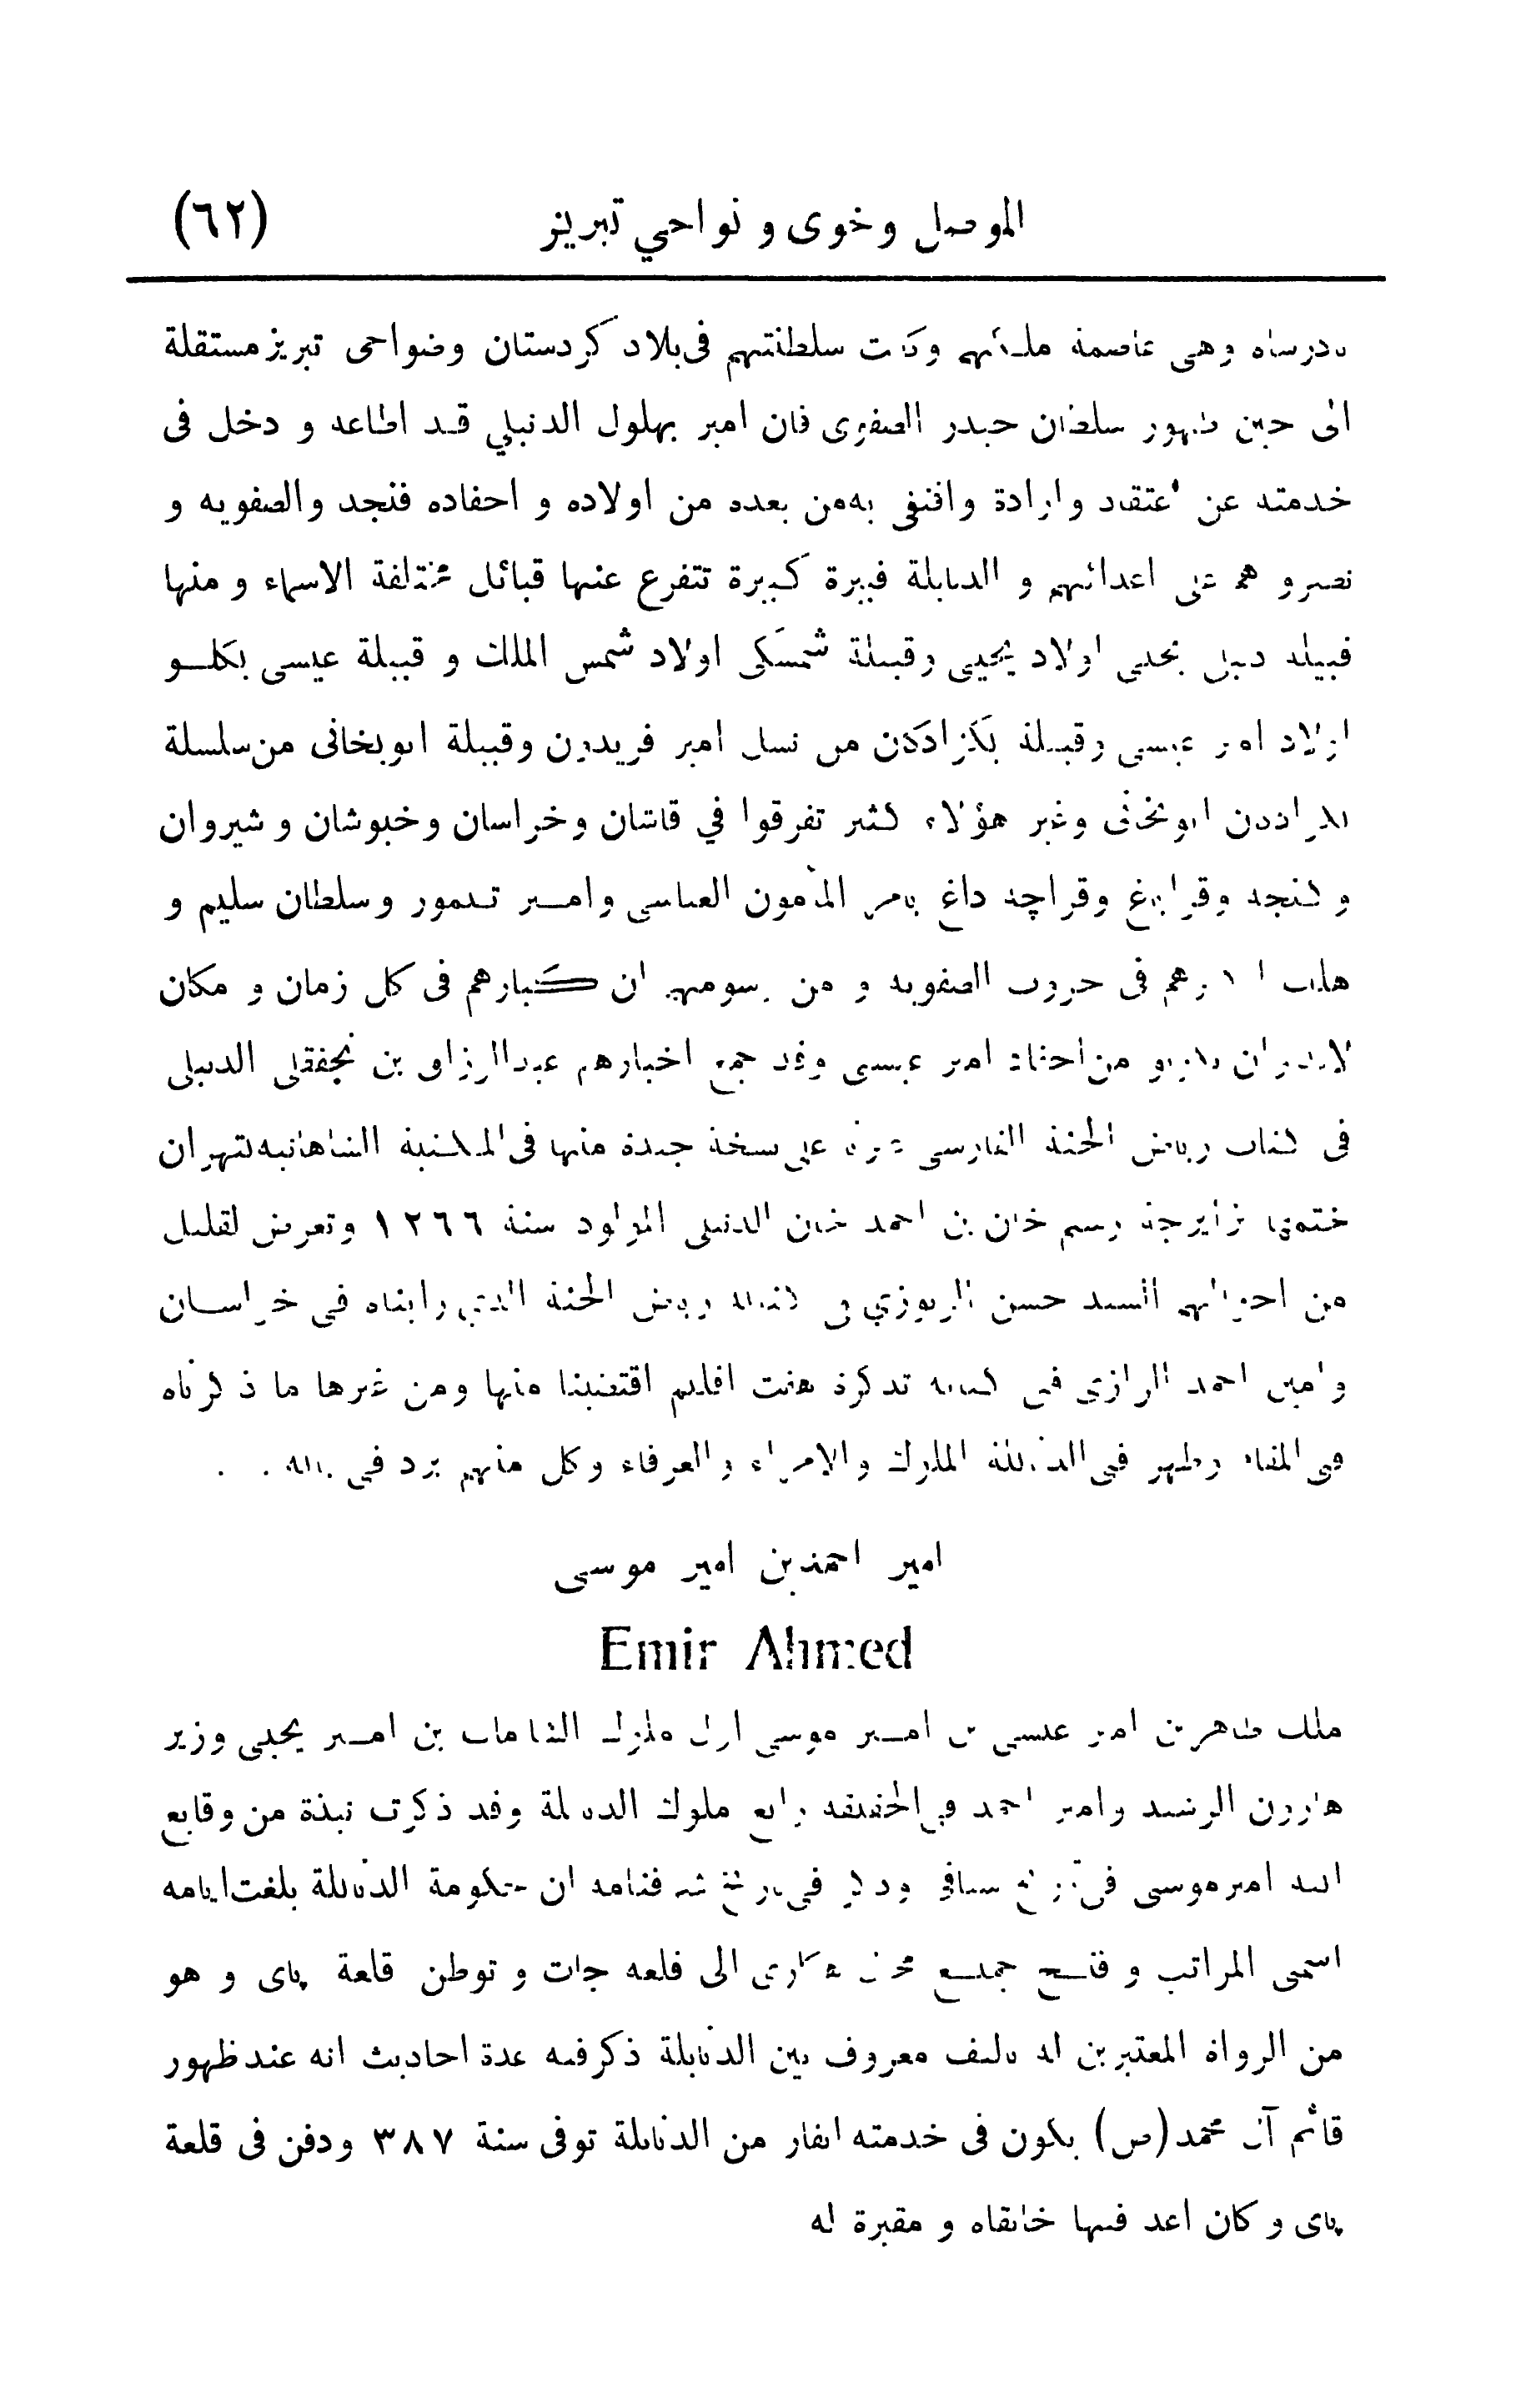 الموصل وخوى و نواحي تبريز (٦٢)
وهى عاصمة ملكهم وكانت سلطنتهم فى بلاد كردستان وضواحى تبريز مستقلة
الى حين ظهور سلطان حيدر الصفوى فان امير بهلول الدنبلي قد اطاعه و دخل فى
خدمته عن اعتقاد وارادة واقتفى به من بعده من اولاده و احفاده فنجد والصفويه و
نصرو هم على اعدائهم و الدنابلة قبيرة كبيرة تتفرع عنها قبائل مختلفة الاسماء و منها
قبيله دنبل يحيى اولاد يحيى وقبيلة شمسكى اولاد شمس الملك و قبيلة عيسى بكلو
اولاد امير عيسى وقبيلة بكزادكان من نسل امير فريدون وقبيلة ايوبخانى من سلسلة
ايوبخانى وغير هؤلاء كثير تفرقوا في قاشان وخراسان وخبوشان و شيروان
و كنجه وقراباغ وقراچه داغ بامر المأمون العباسى وامير تيمور وسلطان سليم و
هلك اكثرهم فى حروب الصفويه و من رسومهم ان كبارهم فى كل زمان و مكان
من احفاد امير عيسى وقد جمع اخبارهم عبدالرزاق بن نجفقلى الدنبلى
فى كتاب رياض الجنة الفارسى على نسخة جيدة منها فى المكتبة الشاهانيه بتهران
ختمها بترجمة رستم خان بن احمد خان الدنبلى المولود سنة ١٢٦٦ وتعرض لقليل
من احوالهم السيد حسن الزنوزي فى كتابه رياض الجنة الذي رايناه فى خراسان
وامين احمد الرازى فى كتابه تذكرة هفت اقليم اقتضبنا منها ومن غيرها ما ذكرناه
فى المقام وظهر فى الدنابلة الملوك والامراء والعرفاء وكل منهم يرد فى بابه . .
امير احمد بن امير موسى
Emir Ahmed
ملك طاهر بن امير عيسى بن امير موسى اول ملوك الشامات بن امير يحيى وزير
هارون الرشيد وامير احمد فى الحقيقه رابع ملوك الدنابلة وقد ذكرت نبذة من وقايع
ابيه امير موسى فى وذكر فى تاريخ شرفنامه ان حكومة الدنابلة بلغت ايامه
اسمى المراتب و فتح جميع هكارى الى قلعه جات و توطن قلعة پاى و هو
من الرواة المعتبرين له تاليف معروف بين الدنابلة ذكر فيه عدة احاديث انه عند ظهور
قائم آل محمد (ص) يكون فى خدمته انفار من الدنابلة توفى سنة ٣٨٧ ودفن فى قلعة
پاى و كان اعد فيها خانقاه و مقبرة له